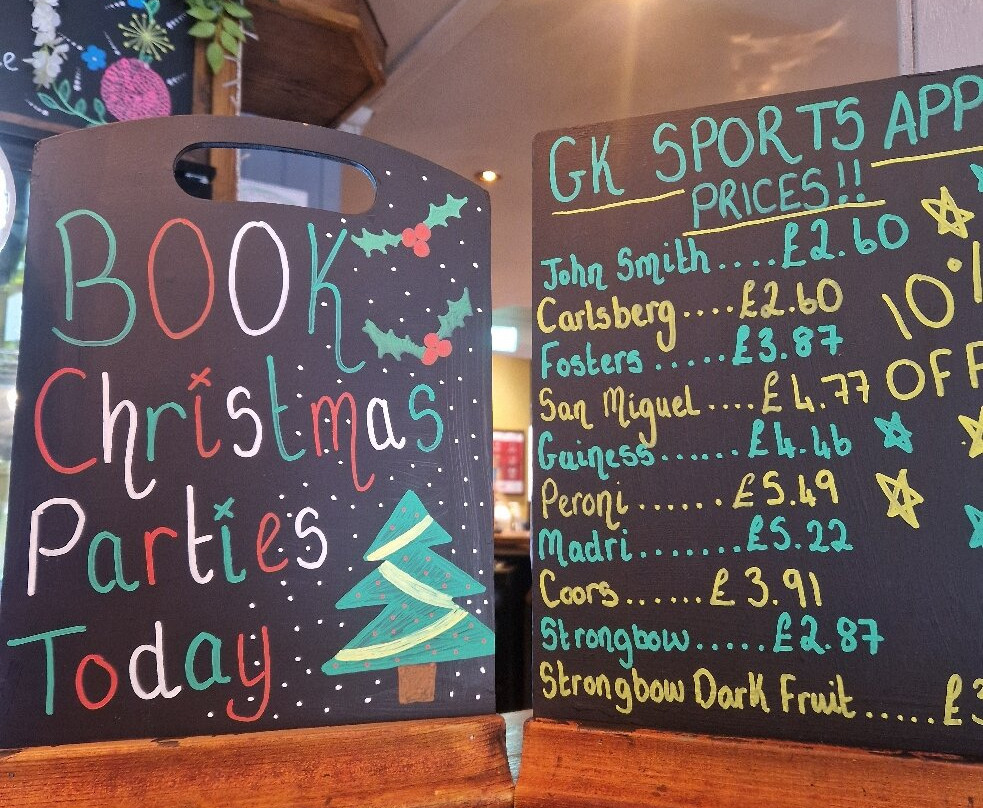 BOOK
Christmas
Parties
Today
GK SPORTS APP
PRICES!!
John Smith....£2.60
Carlsberg....£2.60
Fosters.....£3.87
San Miguel....£4.77
Guiness......£4.46
Peroni......£5.49
Madri.......£5.22
Coors......£3.91
Strongbow.....£2.87
Strongbow Dark Fruit.....£3
10%
OFF